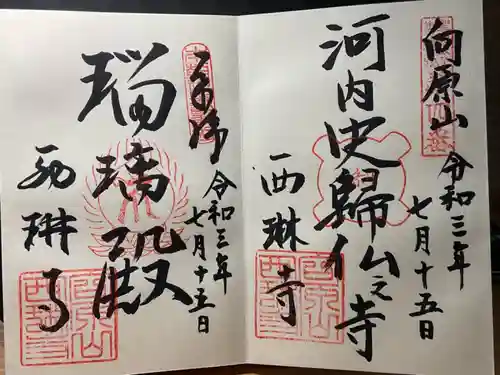 向原山
令和三年
七月十五日
河内史歸仏之寺
西琳寺
奉拝
令和三年
七月十五日
瑠璃殿
西琳寺